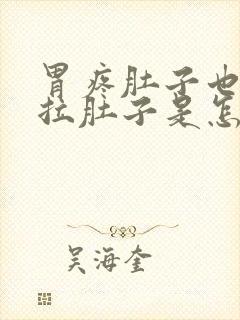 胃疼肚子也
拉肚子是怎
吴海奎